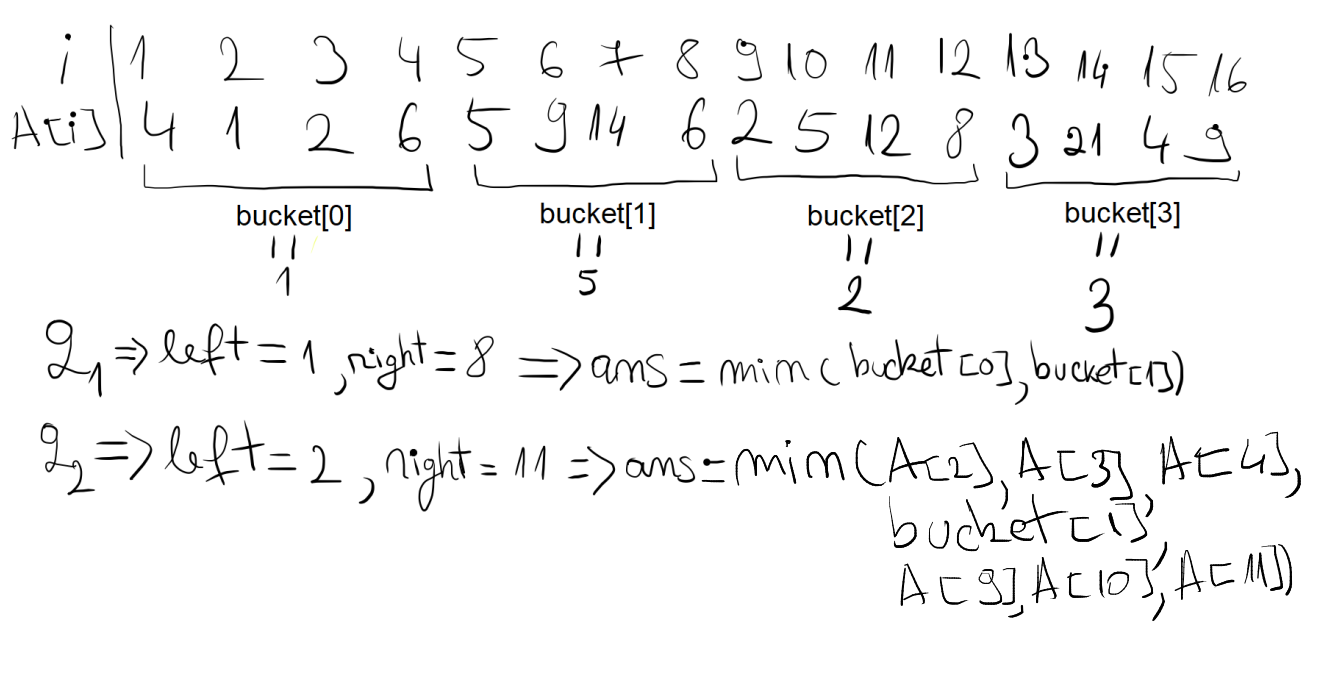 i | 1 2 3 4 5 6 7 8 9 10 11 12 13 14 15 16
A[i] | 4 1 2 6 5 9 14 6 2 5 12 8 3 21 4 9
bucket[0] bucket[1] bucket[2] bucket[3]
= = = =
1 5 2 3
q1 => left = 1, right = 8 => ans = min( bucket[0], bucket[1])
q2 => left = 2, right = 11 => ans = min(A[2], A[3], A[4],
bucket[1],
A[9], A[10], A[11])